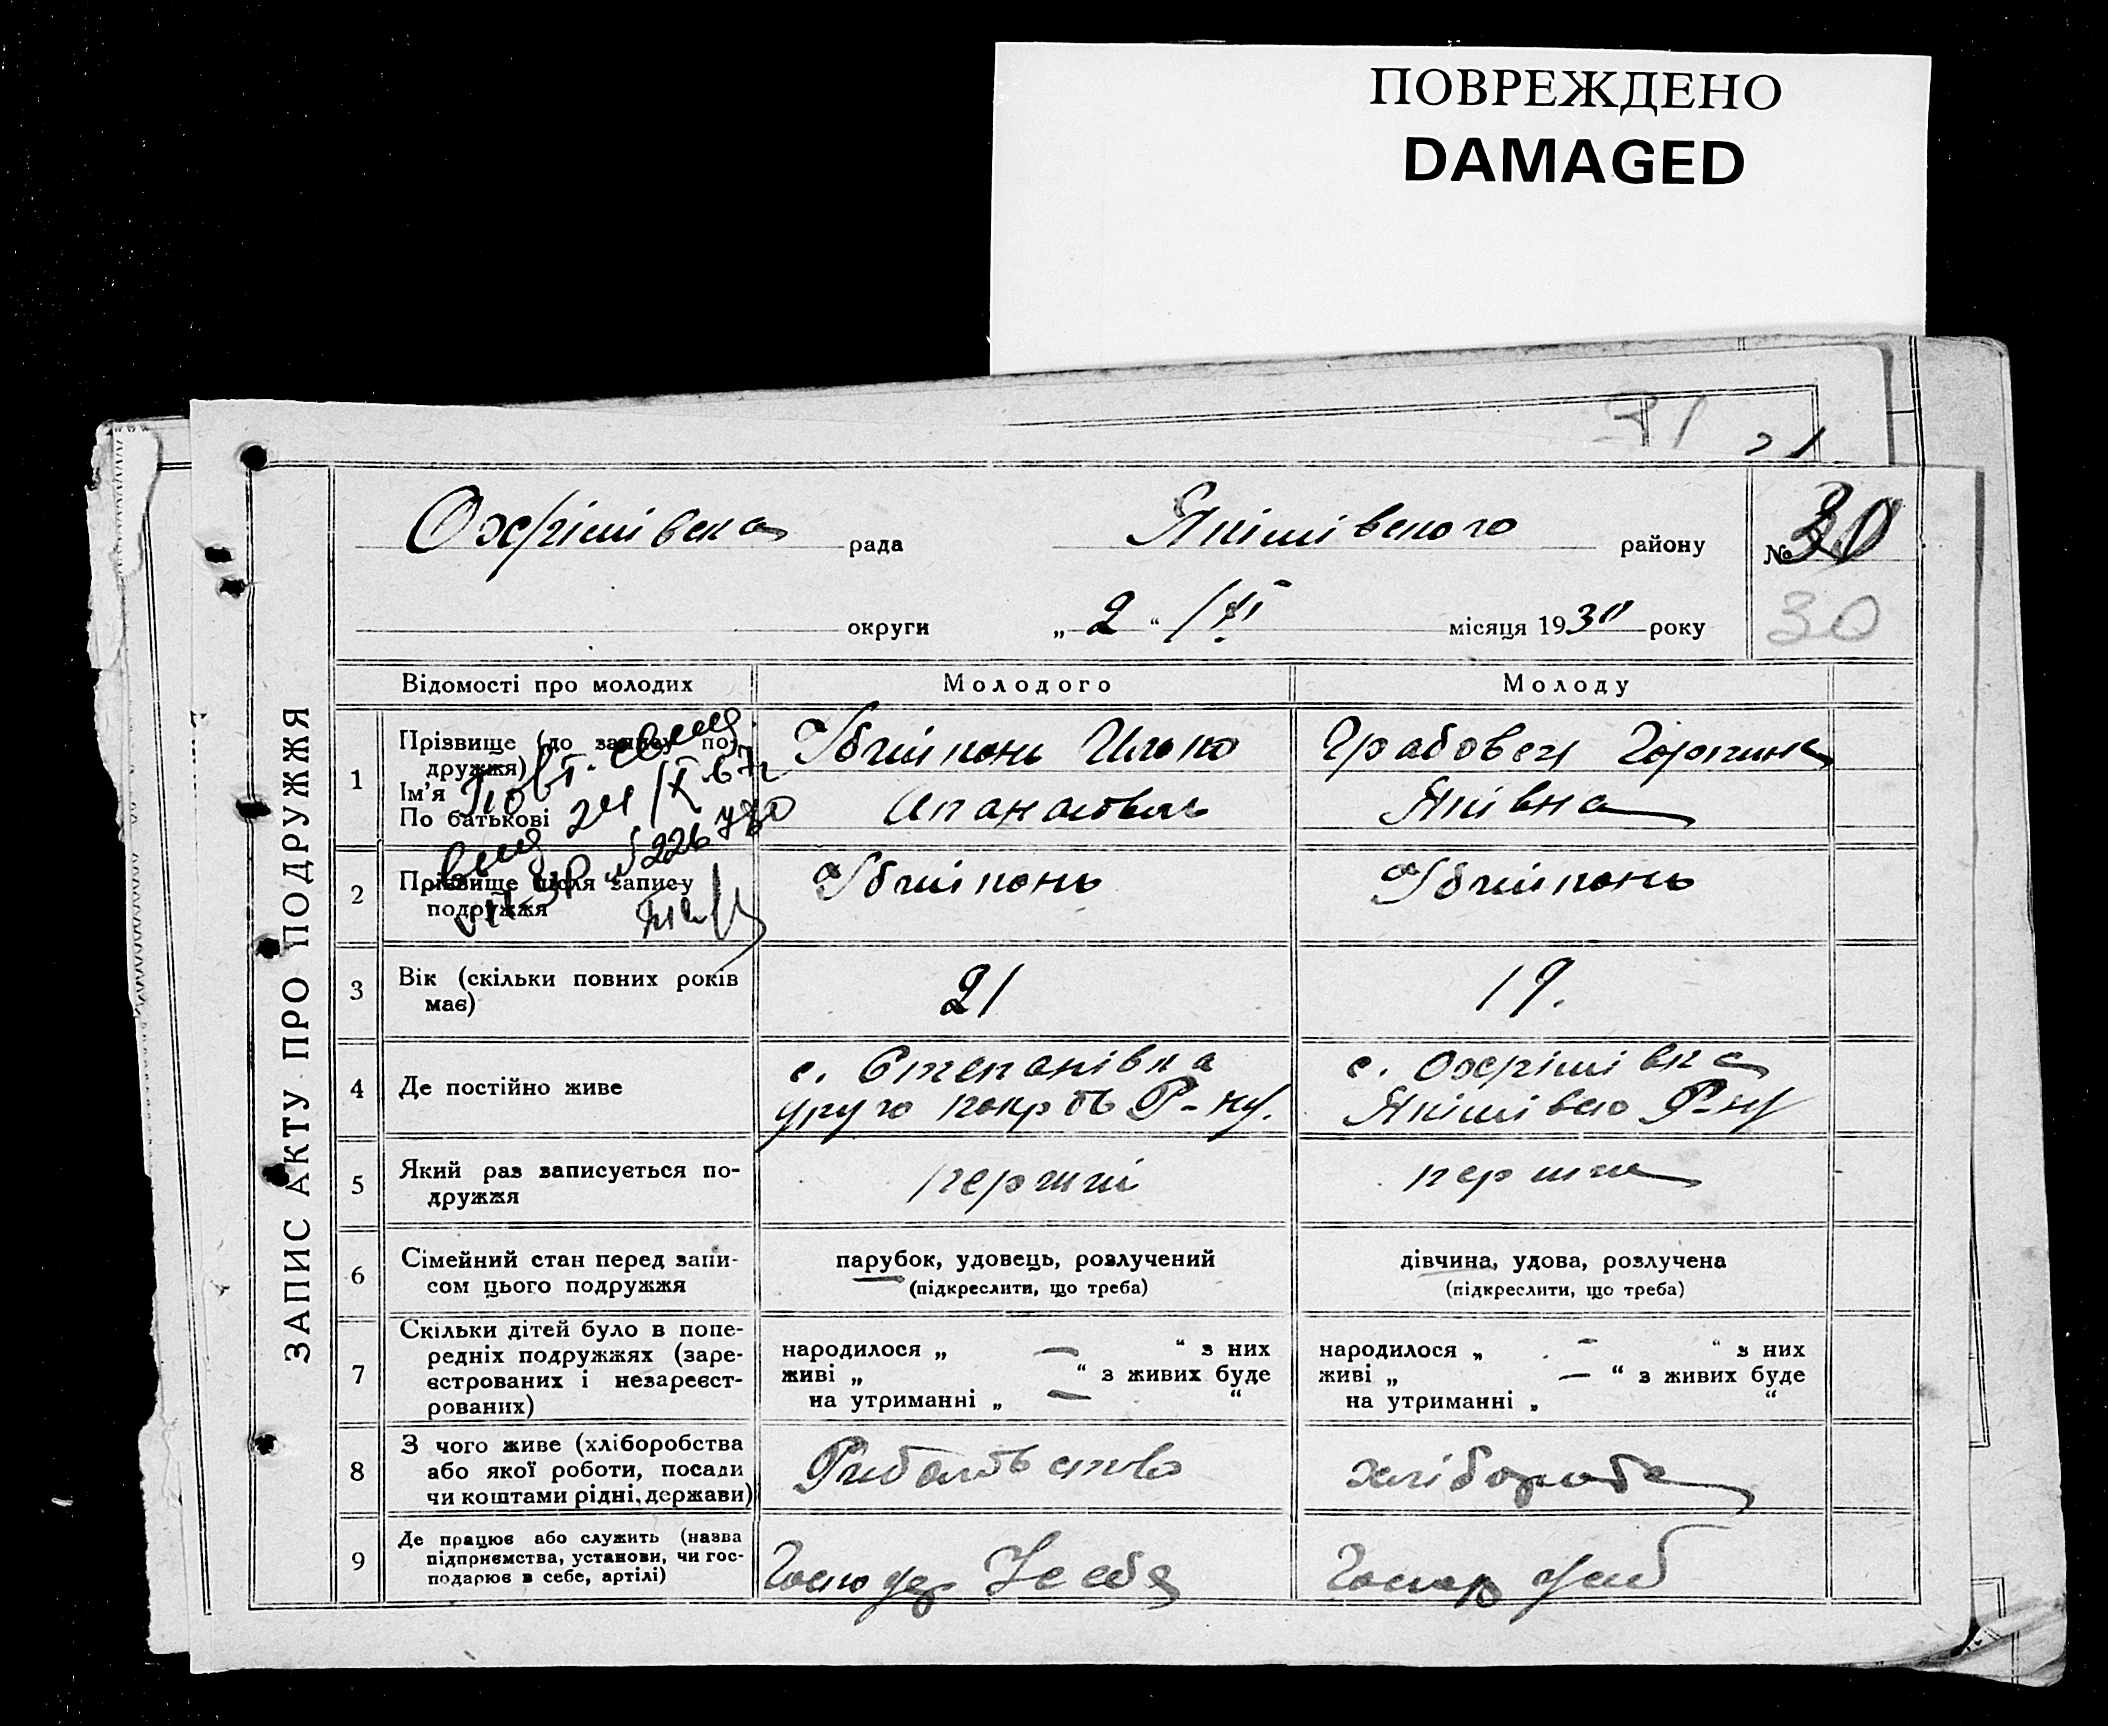 ПОВРЕЖДЕНО
DAMAGED
31
ЗАПИС АКТУ ПРО ПОДРУЖЖЯ
Охрімівска рада Якімівського району № 30
округи „ 2 “ /VI місяця 1930 року
30
Відомості про молодих Молодого Молоду
1 Прізвище (до запису подружжя)
Ім'я
По батькові
Илько
Апанасович
Грабовец Горпина
Яківна
2 Прізвище після запису
подружжя
3 Вік (скільки повних років
має)
21 19.
4 Де постійно живе
с. Степанівка
Р-ну.
с. Охрімівка
Якімівсо Р-ну
5 Який раз записується по-
дружжя
перший перше
6 Сімейний стан перед запи-
сом цього подружжя
парубок, удовець, розлучений
(підкреслити, що треба)
дівчина, удова, розлучена
(підкреслити, що треба)
7 Скільки дітей було в попе-
редніх подружжях (заре-
єстрованих і незареєст-
рованих)
народилося „ — “ з них
живі „ “ з живих буде
на утриманні „ — “
народилося „ — “ з них
живі „ — “ з живих буде
на утриманні „ “
8 З чого живе (хліборобства
або якої роботи, посади
чи коштами рідні, держави)
Рибальство хлібороб
9 Де працює або служить (назва
підприємства, установи, чи гос-
подарює в себе, артілі)